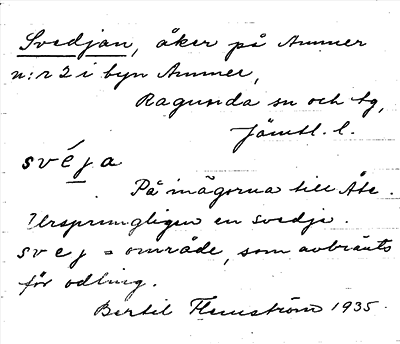 Svedjan, åker på Ammer
n:r 2 i byn Ammer,
Ragunda sn och tg,
Jämtl. l.
svéja
På inägorna till Åse.
Ursprungligen en svedje.
svej = område, som avbränts
för odling.
Bertil Flemström 1935.